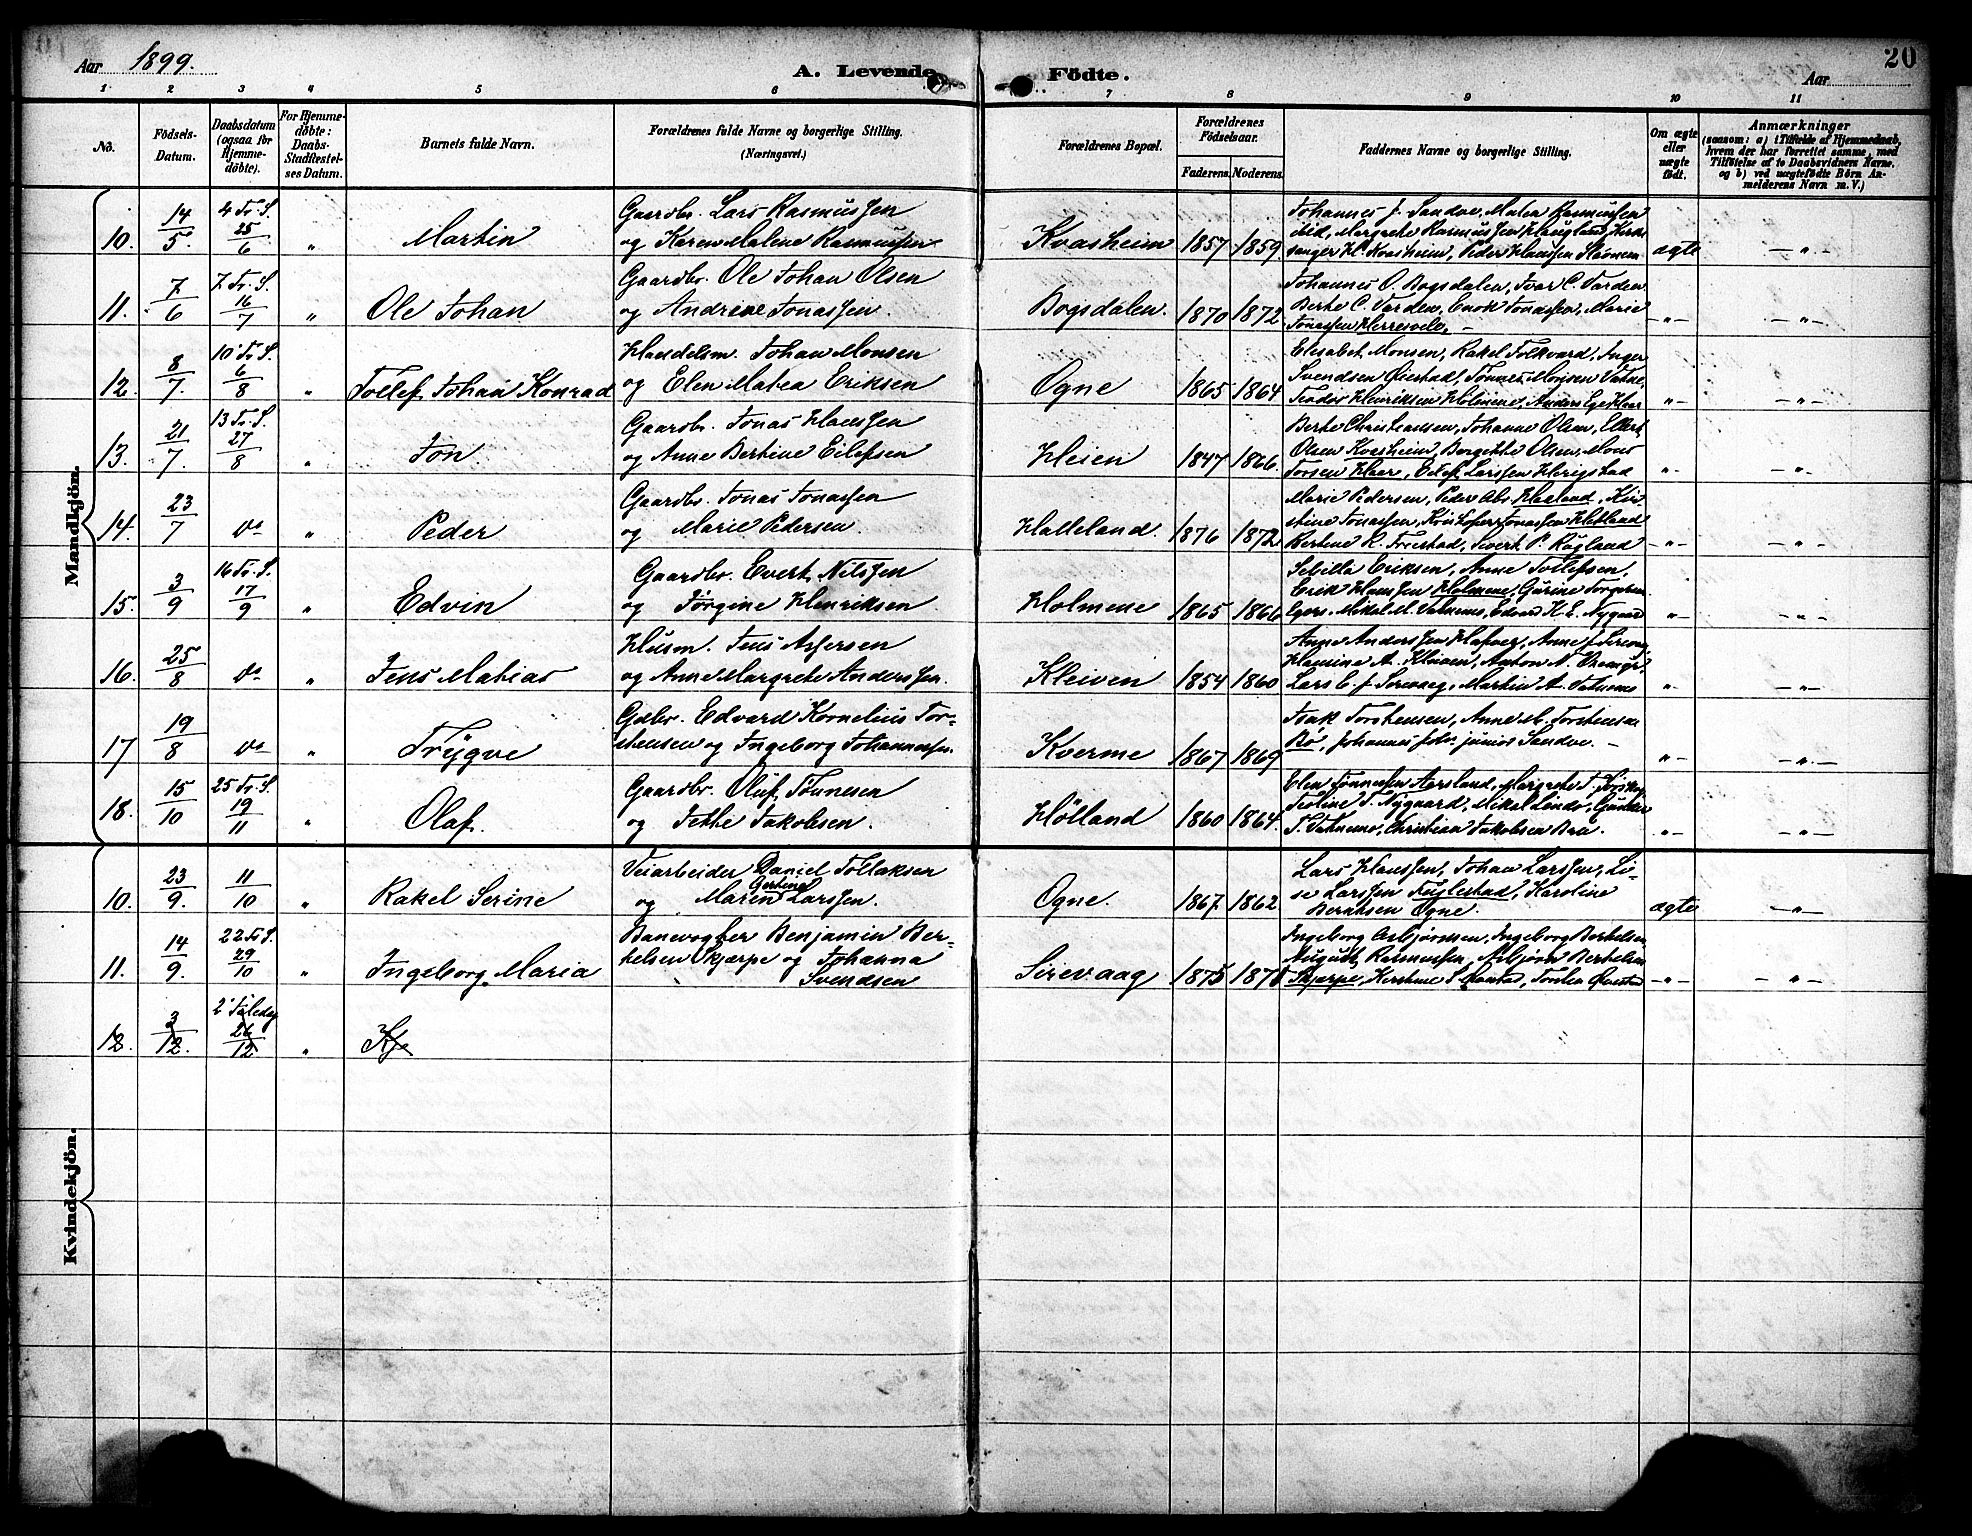 Aar 1899.
A. Levende Födte.
20
Aar
1 2 3 4 5 6 7 8 9 10 11
No.
Födsels-Datum.
Daabsdatum (ogsaa for Hjemmedöbte).
For Hjemmedöbte: Daabs-Stadfestelses Datum.
Barnets fulde Navn.
Forældrenes fulde Navne og borgerlige Stilling.
(Næringsvei.)
Forældrenes Bopæl.
Forældrenes Födselsaar.
Faderens. Moderens.
Faddernes Navne og borgerlige Stilling.
Om ægte eller uægte födt.
Anmærkninger
(saasom: a) i Tilfælde af Hjemmedaab, hvem der har forrettet samme, med Tilföielse af to Daabsvidners Navne, og b) ved uægtefödte Börn Anmelderens Navn m. V.)
Mandkjön.
10. 14/5 4 Tr. S. 25/6 " Martin
Gaardbr. Lars Rasmussen
og Karen Malene Rasmussen
Kvasheim 1857 1859
Johannes J. Sandve, Malea Rasmussen
ibid, Margrete Rasmussen Haugland, Kirke
sanger H. Kvasheim, Peder Hanssen
ægte - " -
11. 7/6 7 Tr. S. 16/7 " Ole Johan
Gaardbr. Ole Johan Olsen
og Andrine Jonassen.
Bogsdalen. 1870 1872
Johannes O. Bogsdalen, Ivar C. Varden
Berte C. Varden, Enok Jonassen, Marie
Jonassen
- " - - " -
12. 8/7. 10 Tr. S. 6/8 " Tollef Johan Konrad
Handelsm. Johan Monsen
og Elen Matea Eriksen
Ogne 1865 1864
Elisabet Monsen, Rakel Folkvard, Inger
Svendsen Øiestad, Tønnes Monsen Vatne,
Teodor Henriksen Holmene, Anders
" - - " -
13. 21/7. 13 Tr. S. 27/8 " Jon.
Gaardbr. Jonas Hanssen
og Anne Bertine Eilefsen
Heien 1847 1866
Berte Christensen, Johanne Olsen, Ellert
Olsen Kvasheim, Borgitte Olsen, Mons
Torsen Haar, Eilef Larssen Herigstad
" - - " -
14. 23/7 do " Peder
Gaardbr. Jonas Jonassen
og Marie Pedersen
Halleland. 1876 1872
Marie Pedersen, Peder Abr. Haaland, Kri
stine Jonassen, Kristoffer Jonassen Hetland
Bertine R. Tjøstad, Sivert P. Rögland
- " - - " -
15. 3/9 16 Tr. S. 17/9 " Edvin
Gaardbr. Evert Nilssen
og Jørgine Henriksen
Holmene 1865 1866
Sebilla Eriksen, Anne Tollefsen,
Erik Hanssen Holmene, Gurine Torgersen
Egers. Mikal M. Vatnemo, Edvard H. E. Nygaard
" - - " -
16. 25/8 do " Jens Matias
Husm. Jens Assersen
og Anne Margrete Anderssen.
Kleiven 1854 1860
Anne Anderssen
Hansine A. Kleiven, Anton N.
Lars C. J. Sirevaag, Martin A. Vatnemo
" - - " -
17 19/8 do " Trÿgve
Gdbr. Edvard Kornelius Tor-
stensen og Ingeborg Johannessen.
Kverme 1867 1869
Isak Torstensen, Anne M. Torstensen
Bø, Johannes Johs. junior Sandve. -
" - - " -
18. 15/10 25 Tr. S. 19/11 " Olaf.
Gaardbr. Oluf Tönnesen
og Jette Jakobsen.
Hölland 1860 1864.
Elen Tønnessen Aarsland, Margrete T.
Teoline T. Nygaard, Mikal Lindø, Gunder
T. Vatnemo, Christian Jakobsen Bru.
" - - " -
Kvindekjön.
10. 23/9. 11/10 " Rakel Serine
Veiarbeider Daniel Tollaksen
og Maren Gurine Larssen.
Ogne. 1867. 1862
Lars Hanssen, Johan Larssen, Li-
se Larssen Fuglestad, Karoline
Berntsen Ogne.
ægte - " -
11. 14/9. 22 Tr. S. 29/10 " Ingeborg Maria
Banevogter Benjamin Ber-
telsen Skjærpe og Johanna
Svendsen
Sirevaag 1875 1871
Ingeborg Asbjørnsen, Ingeborg Bertelsen
August Rasmussen, Asbjørn Bertelsen
Skjærpe, Kirstine S. Torsten
- " - - " -
12. 3/12. 2' Juledag 26/12 "